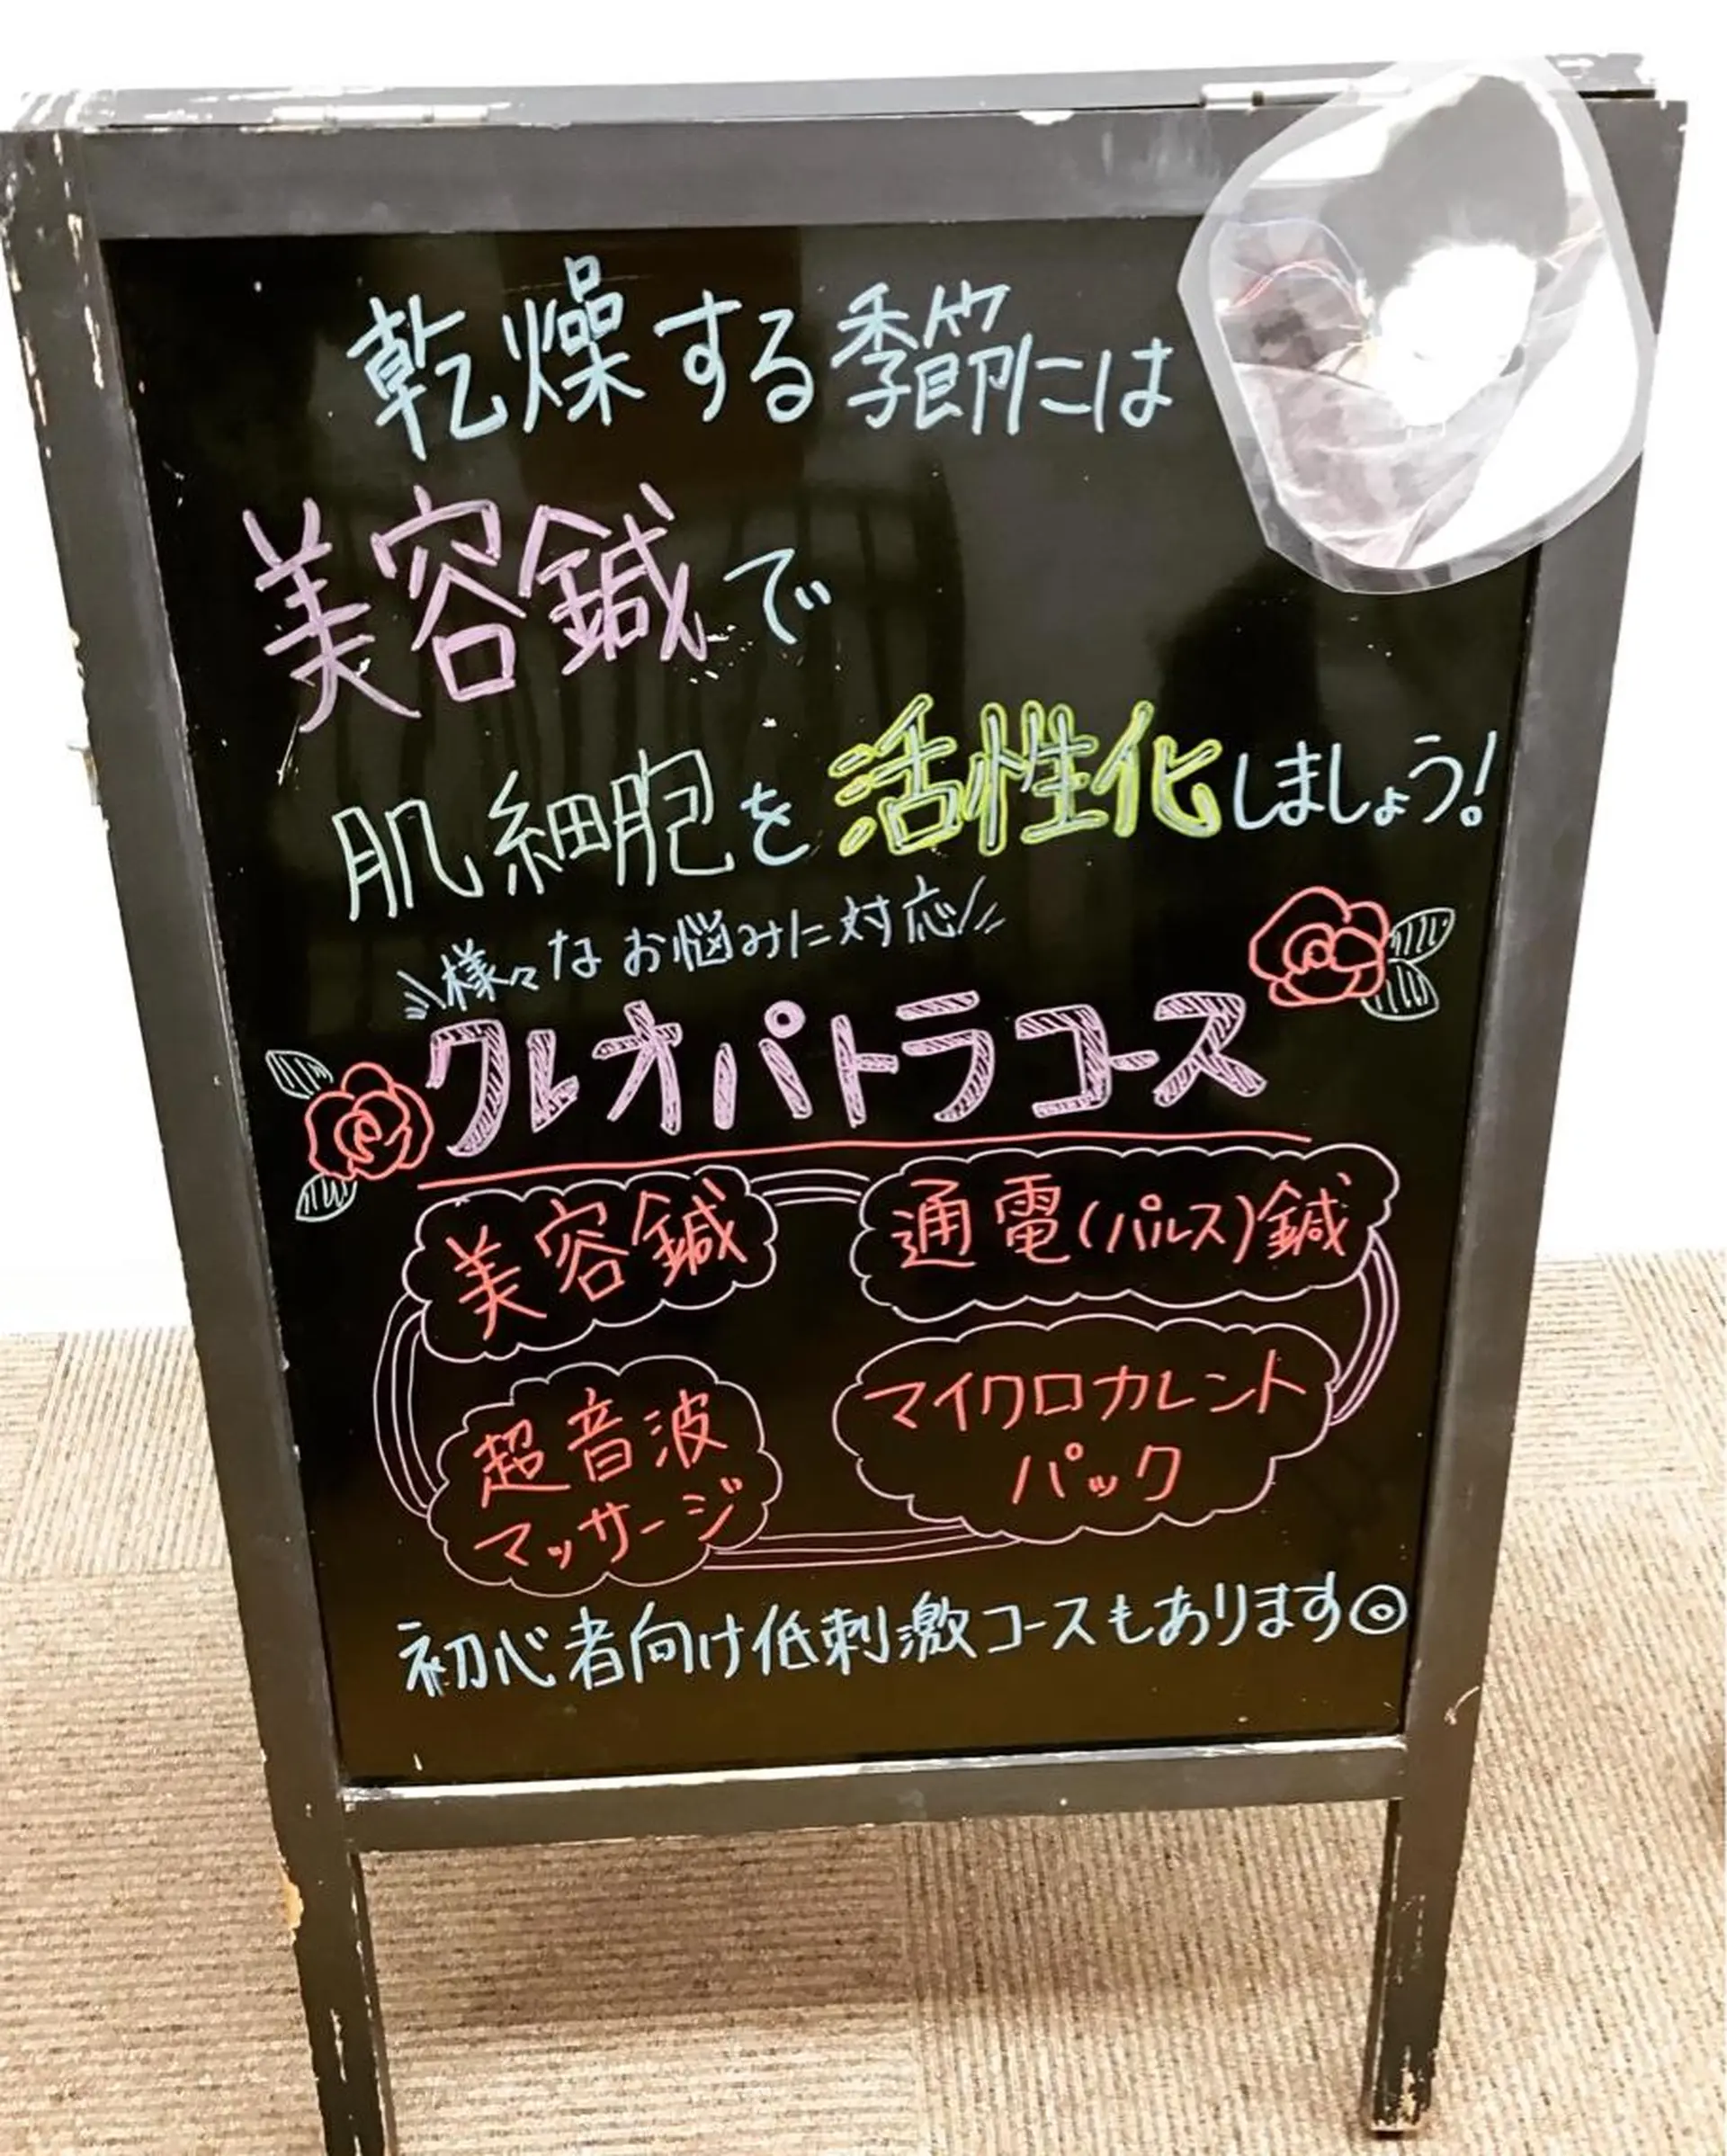 乾燥する季節には
美容鍼で
肌細胞を活性化しましょう!
\\様々なお悩みに対応//
クレオパトラコース
美容鍼
通電(パルス)鍼
超音波
マッサージ
マイクロカレント
パック
初心者向け低刺激コースもあります◎